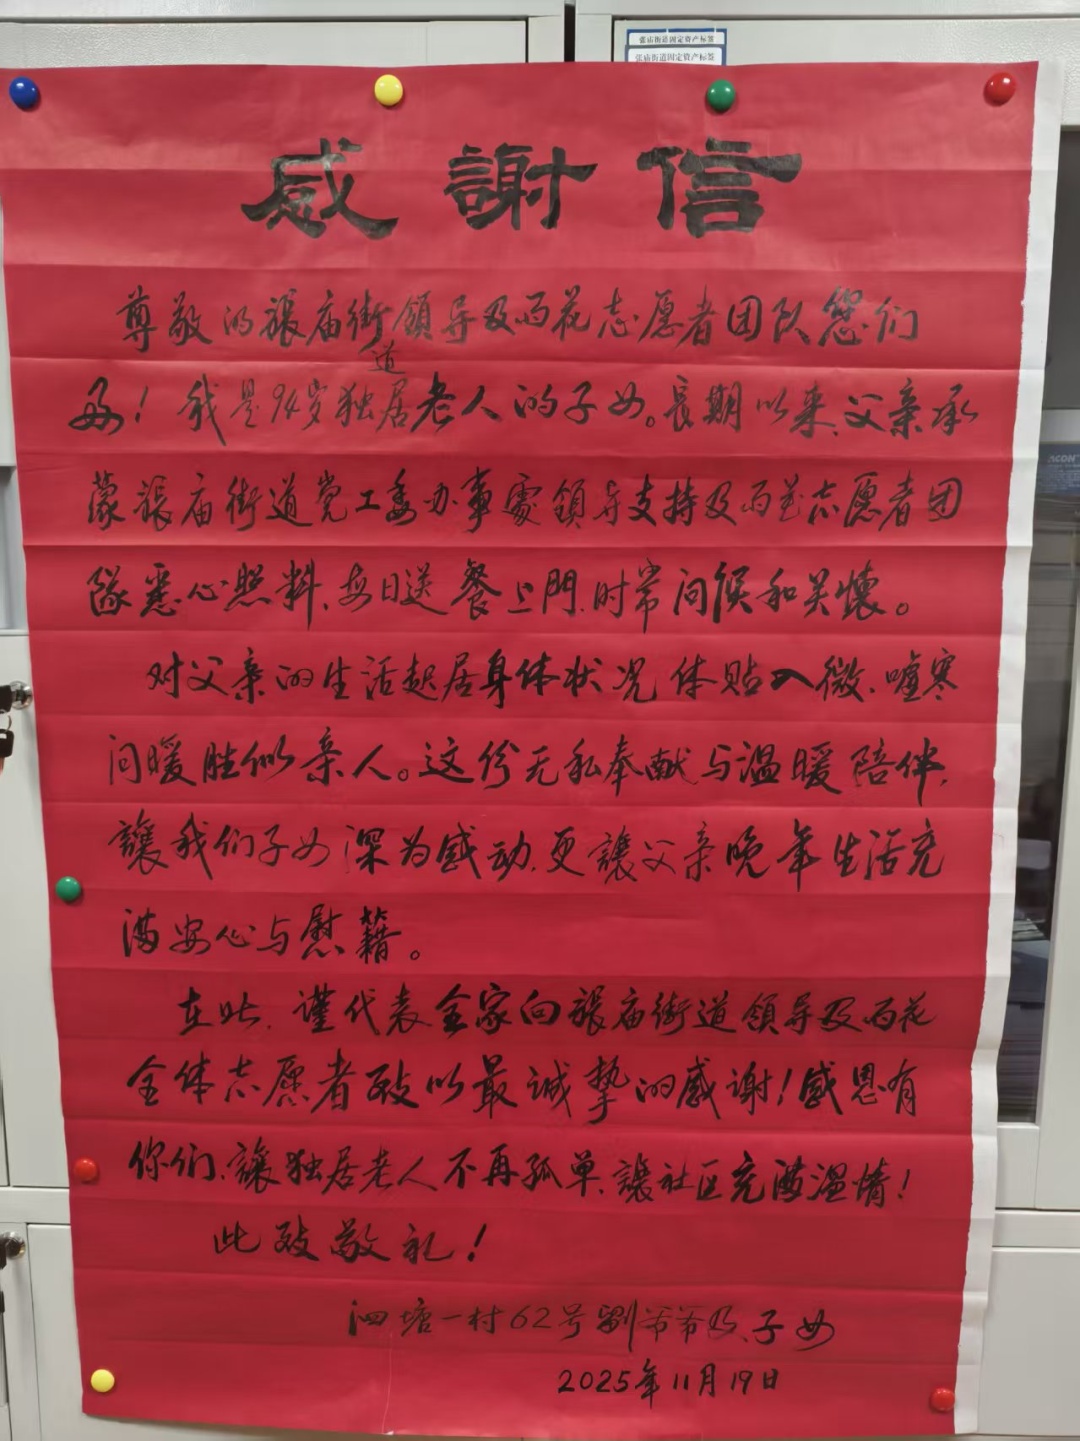 张庙街道固定资产标签
张庙街道固定资产标签
感謝信
尊敬的張庙街道領导及雨花志愿者团队您们
好！我是94岁独居老人的子女。長期以来，父亲承
蒙張庙街道党工委办事處領导支持及雨花志愿者团
隊悉心照料，每日送餐上門，时常问候和关懷。
对父亲的生活起居身体状况体贴入微，嘘寒
问暖胜似亲人。这份无私奉献与温暖陪伴，
讓我们子女深为感动，更讓父亲晚年生活充
满安心与慰籍。
在此，谨代表全家向張庙街道領导及雨花
全体志愿者致以最诚挚的感谢！感恩有
你们，讓独居老人不再孤单，讓社区充满温情！
此致敬礼！
泗塘一村62号劉爷爷及子女
2025年11月19日